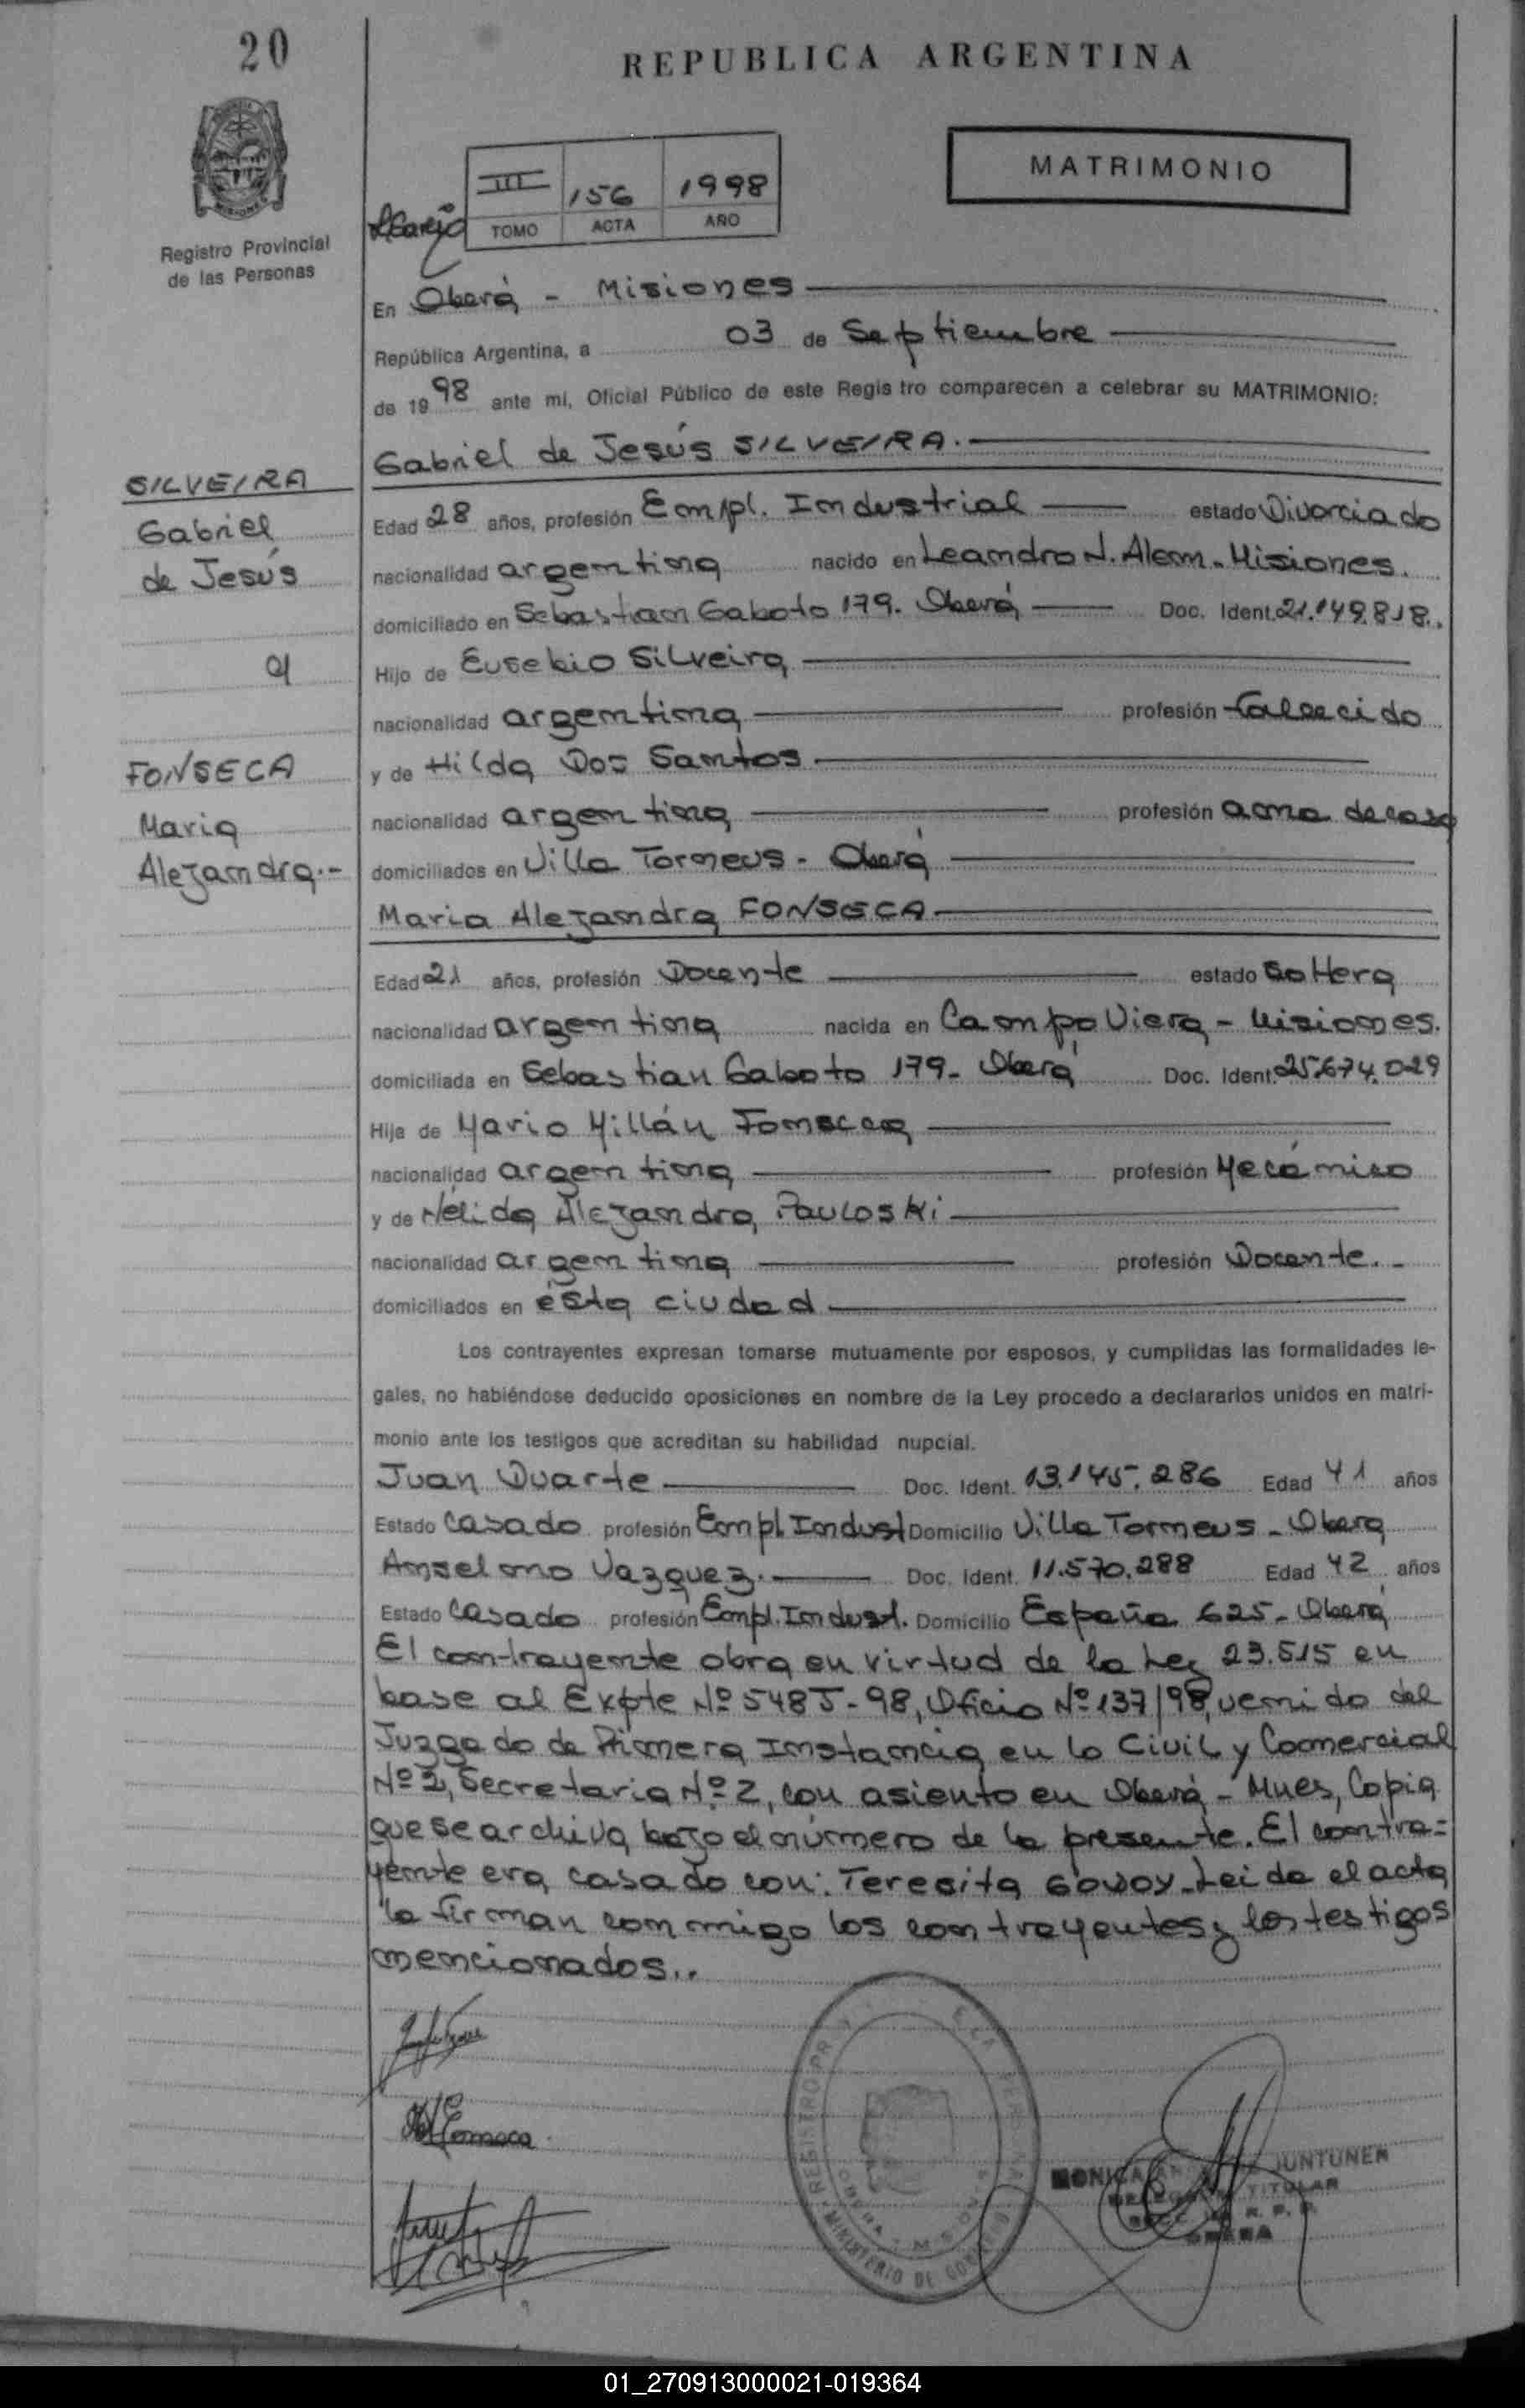 20
REPUBLICA ARGENTINA
MATRIMONIO
III 156 1998
TOMO ACTA AÑO
Registro Provincial
de las Personas
En Oberá - Misiones
República Argentina, a 03 de Septiembre
de 1998 ante mi, Oficial Público de este Regis tro comparecen a celebrar su MATRIMONIO:
Gabriel de Jesús SILVEIRA.-
SILVEIRA
Gabriel
de Jesús
Edad 28 años, profesión Empl. Industrial estado Divorciado
nacionalidad argentina nacido en Leandro N. Alem - Misiones.
domiciliado en Sebastian Gaboto 179. Oberá Doc. Ident. 21.149.818..
Hijo de Eusebio Silveira
nacionalidad argentina profesión Falleci do
y de Hilda Dos Santos
FONSECA
Maria
Alejandra.-
nacionalidad argentina profesión ama de casa
domiciliados en Villa Torneus - Oberá
Maria Alejandra FONSECA
Edad 21 años, profesión Docente estado Soltera
nacionalidad argentina nacida en Campo Viera - Misiones.
domiciliada en Sebastian Gaboto 179 - Oberá Doc. Ident. 25.674.029
Hija de Mario Millán Fonseca
nacionalidad argentina profesión Mecánico
y de Nélida Alejandra Pauloski
nacionalidad argentina profesión Docente.-
domiciliados en ésta ciudad
Los contrayentes expresan tomarse mutuamente por esposos, y cumplidas las formalidades le-
gales, no habiéndose deducido oposiciones en nombre de la Ley procedo a declararlos unidos en matri-
monio ante los testigos que acreditan su habilidad nupcial.
Juan Duarte Doc. Ident. 13.145.286 Edad 41 años
Estado Casado profesión Empl Indust Domicilio Villa Torneus - Obera
Anselmo Vazquez. Doc. Ident. 11.570.288 Edad 42 años
Estado Casado profesión Empl. Indust. Domicilio España 625 - Oberá
El contrayente obra en virtud de la Ley 23.515 en
base al Expte Nº 548 J - 98, Oficio Nº 137/98, venido del
Juzgado de Primera Instancia en lo Civil y Comercial
Nº 2, Secretaria Nº 2, con asiento en Oberá - Mnes, Copia
que se archiva bajo el número de la presente. El contra=
yente era casado con: Teresita GODOY - Leida el acta
la firman conmigo los contrayentes y los testigos
mencionados..
MONICA JUNTUNEN
TITULAR
R. P. P.
OBERA
MINISTERIO DE GOBIERNO
01_270913000021-019364